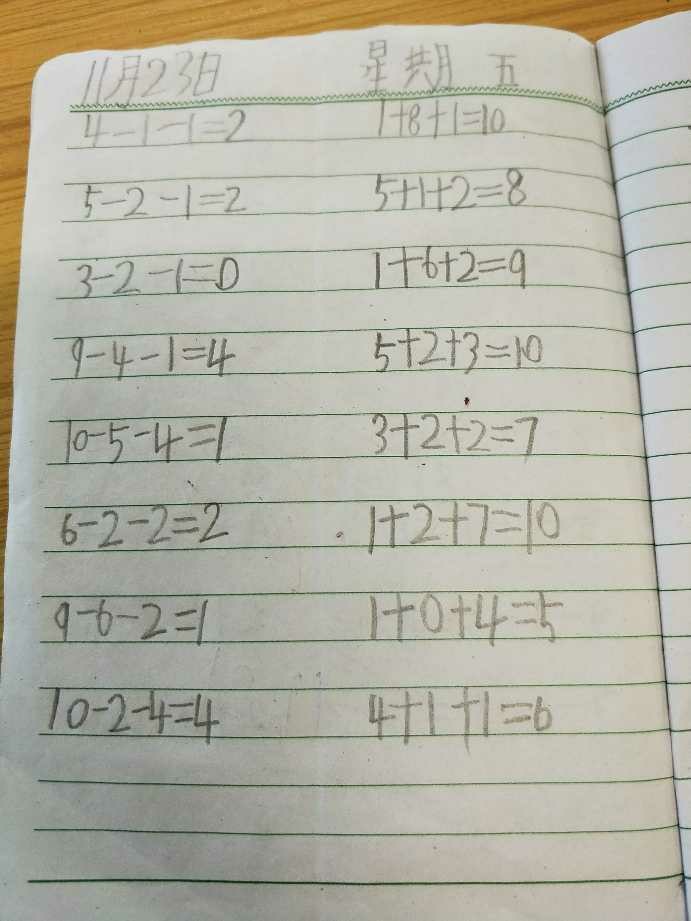 11月23日 星期五
4-1-1=2 1+8+1=10
5-2-1=2 5+1+2=8
3-2-1=0 1+6+2=9
9-4-1=4 5+2+3=10
10-5-4=1 3+2+2=7
6-2-2=2 1+2+7=10
9-6-2=1 1+0+4=5
10-2-4=4 4+1+1=6